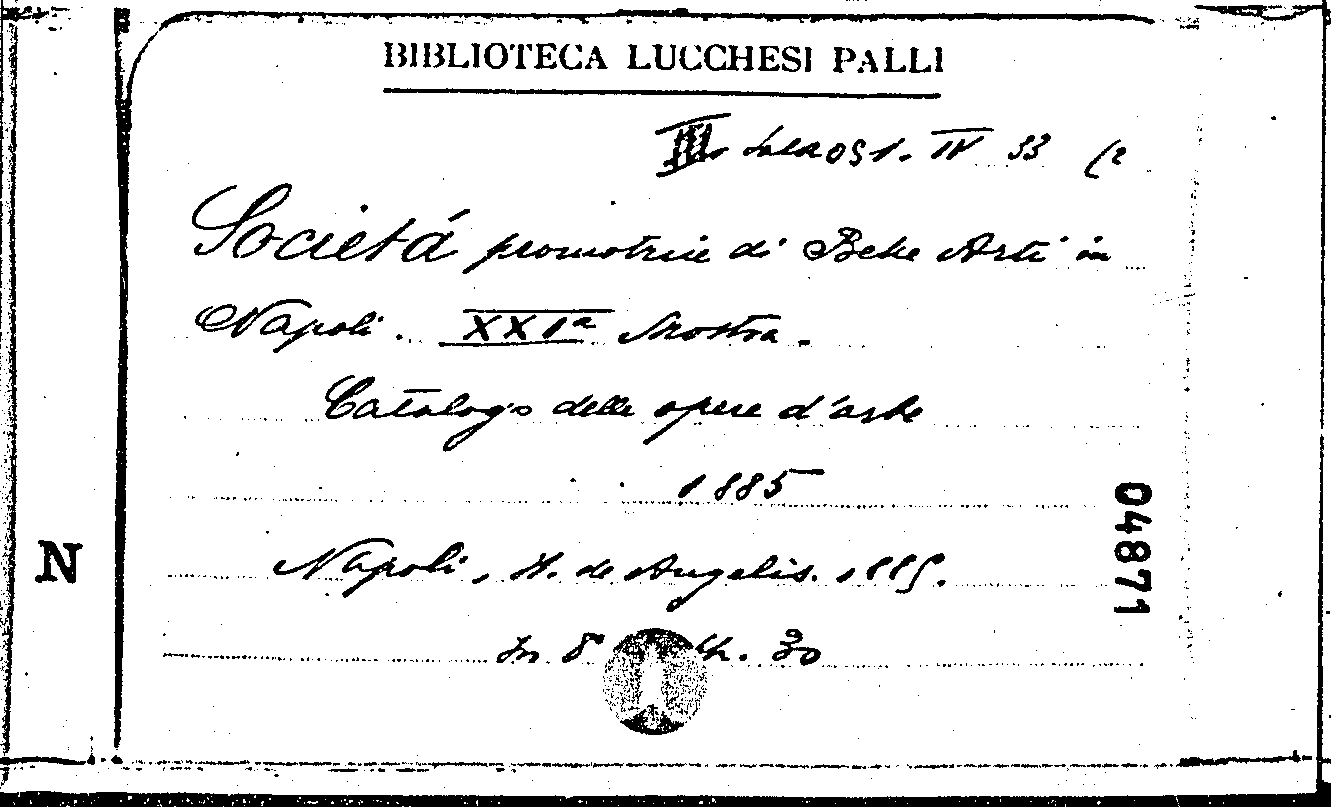 BIBLIOTECA LUCCHESI PALLI
III Sala 051. IV 33 (2
Societá promotrice di Belle Arti in
Napoli. XXIª Mostra.
Catalogo delle opere d'arte
1885
Napoli, de Angelis. 1885.
In 8° 30
N
04871